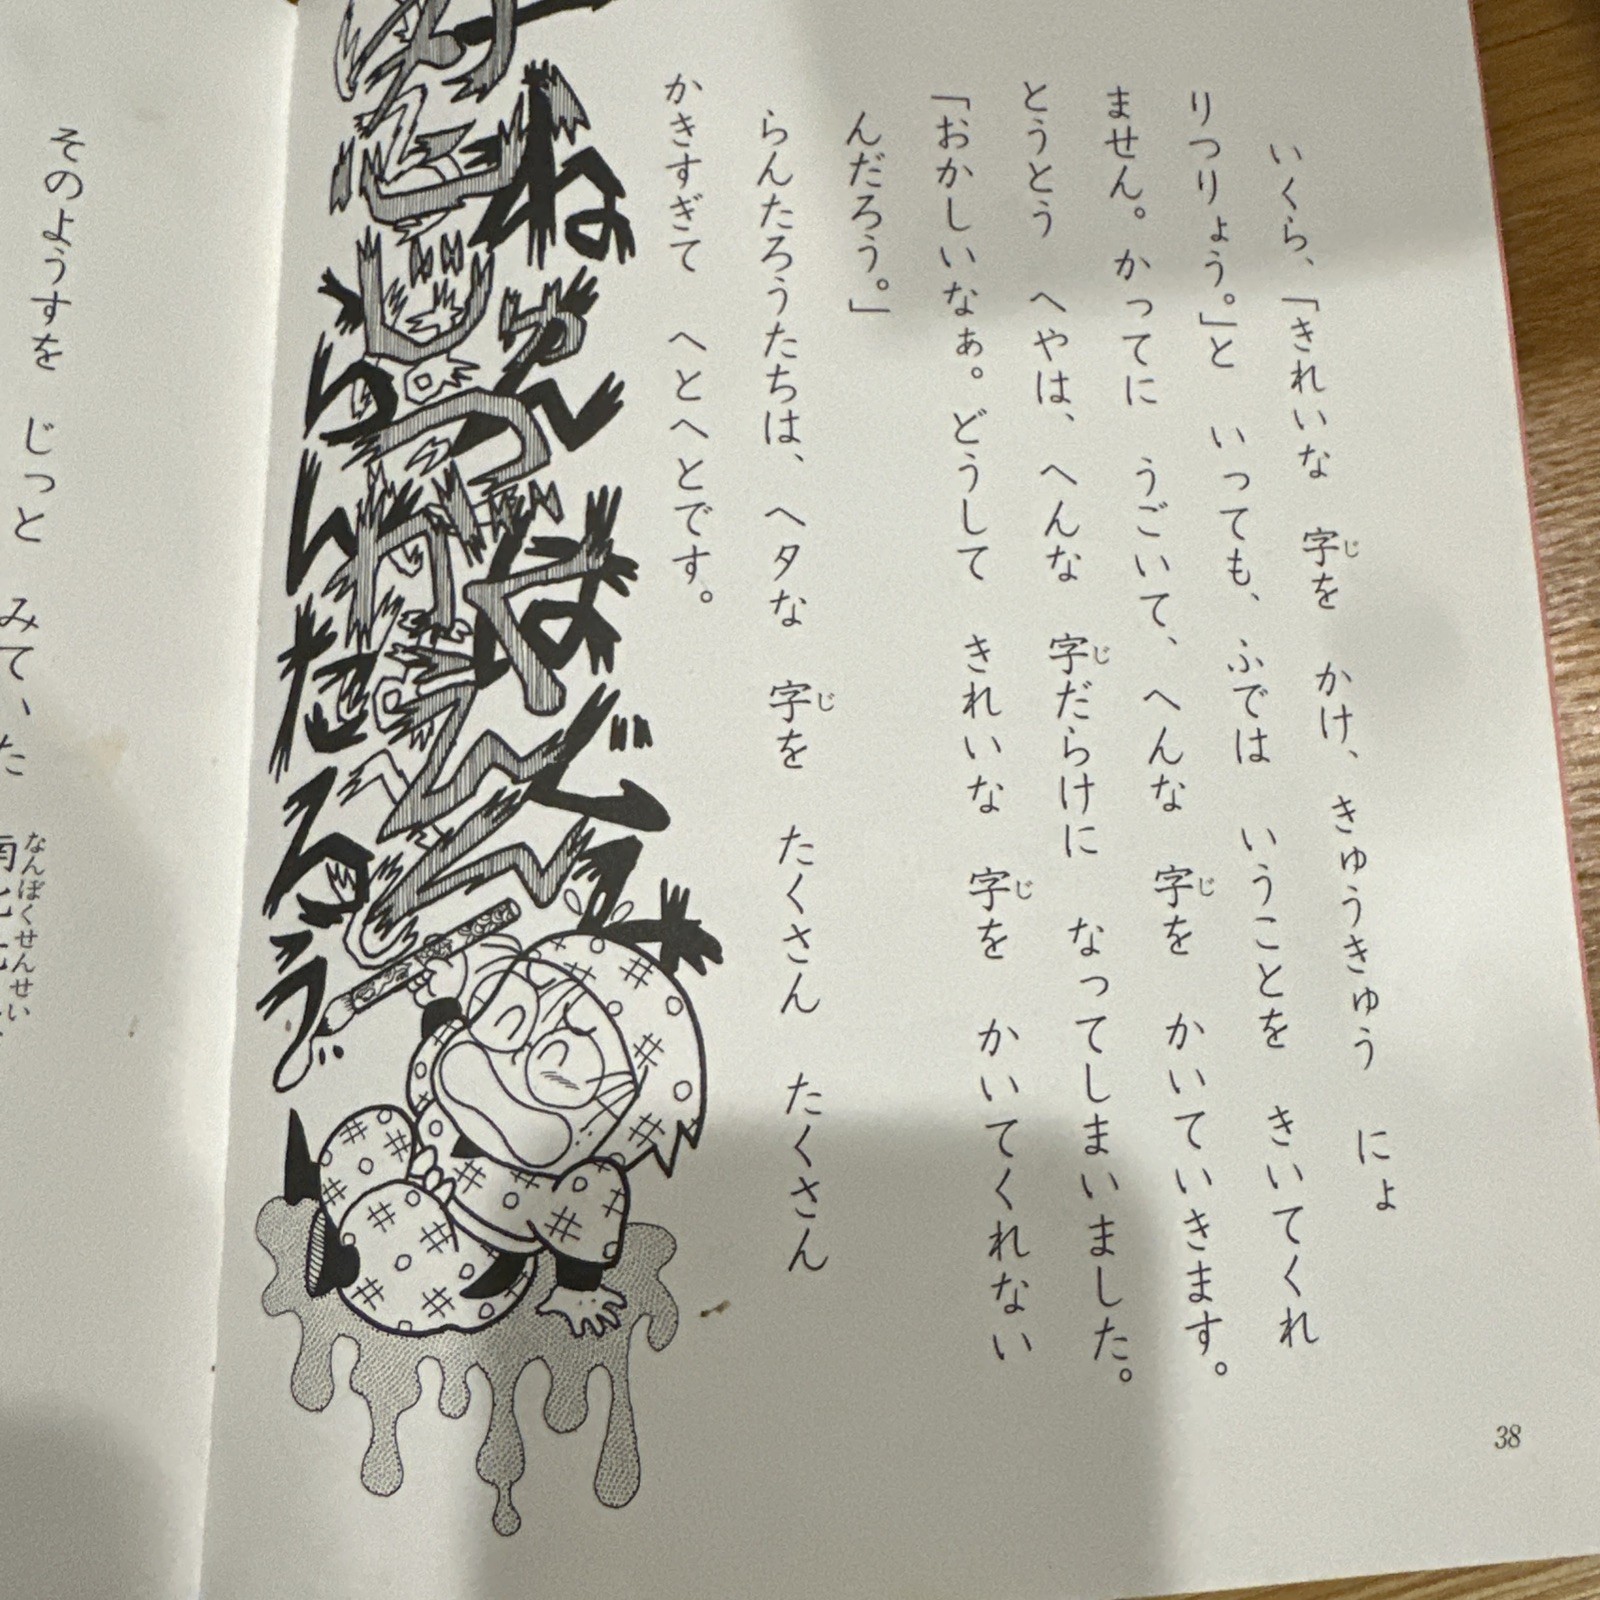 いくら、「きれいな 字を かけ、きゅうきゅう にょ
りつりょう。」と いっても、ふでは いうことを きいてくれ
ません。かってに うごいて、へんな 字を かいていきます。
とうとう へやは、へんな 字だらけに なってしまいました。
「おかしいなぁ。どうして きれいな 字を かいてくれない
んだろう。」
らんたろうたちは、ヘタな 字を たくさん たくさん
かきすぎて へとへとです。
38
そのようすを じっと みていた
なんぼくせんせい